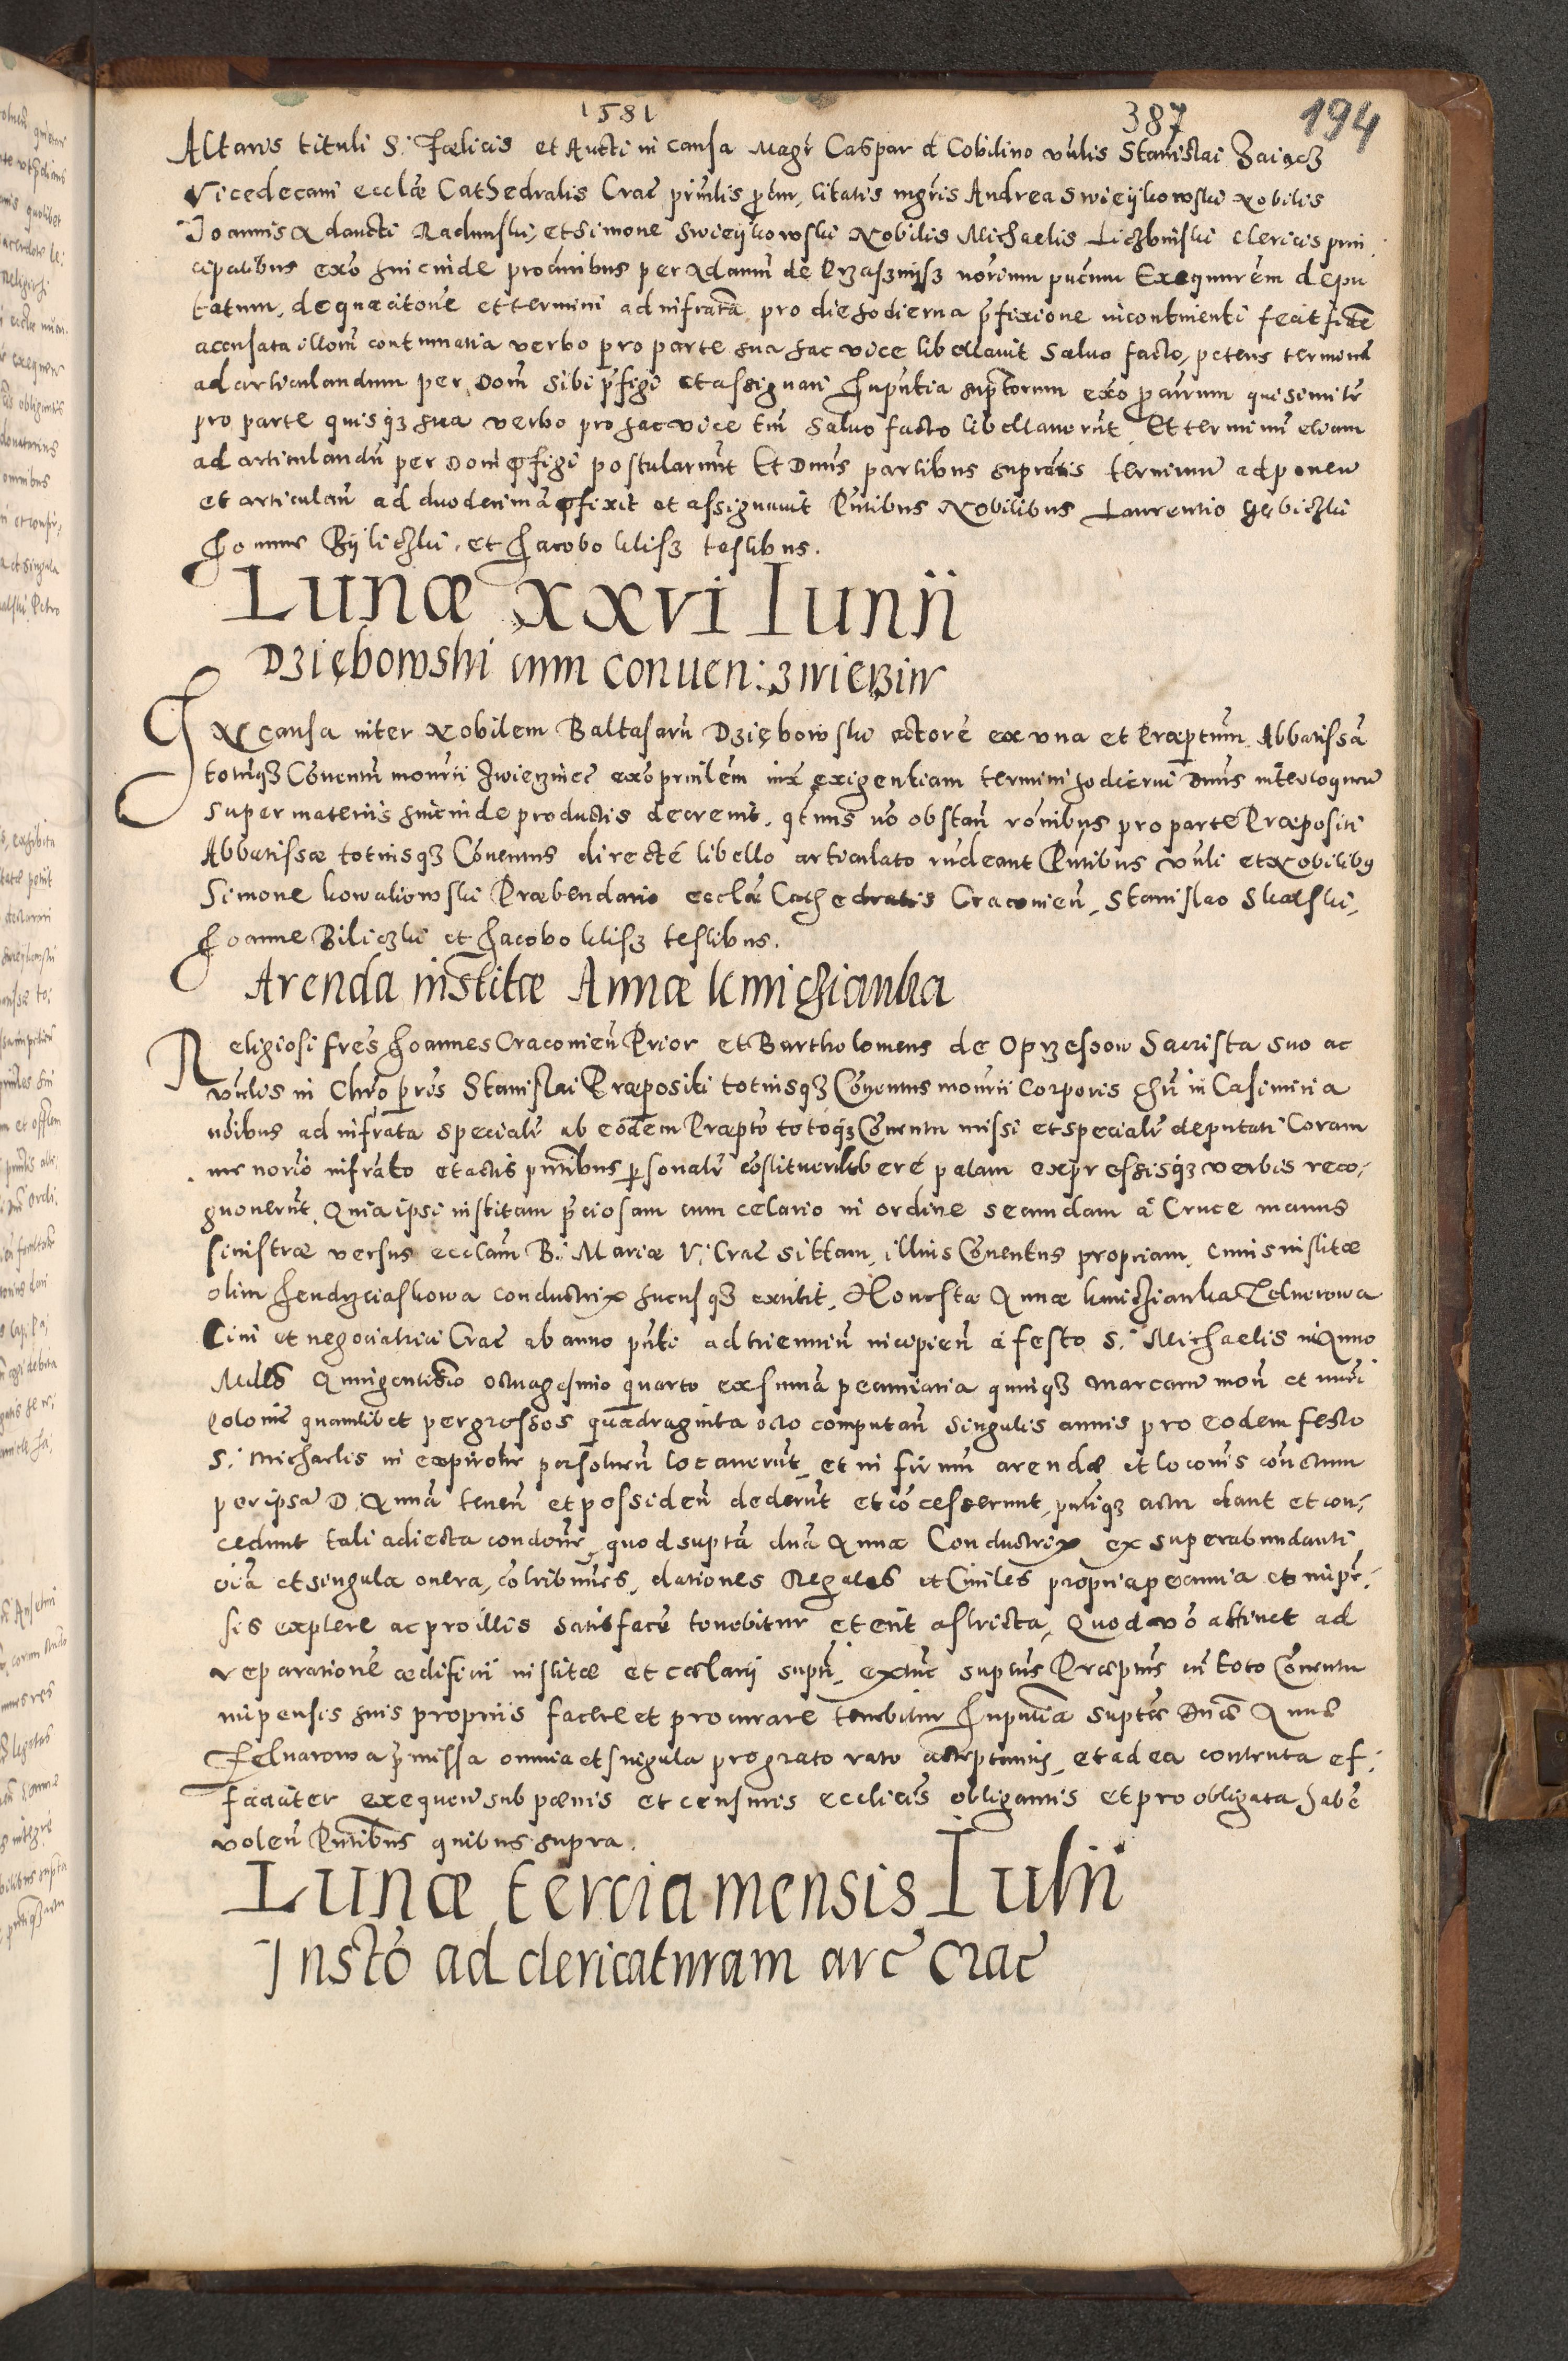 1581 387 194
Altaris tituli S. Fœlicis et Aucti in causa Magri Caspar d Cobilino vnlis Stanislai Zaiącz
Vicedecani ecclæ Cathedralis Crac prinlis, citatis mgris Andrea Swieykowski Nobilis
Joannis Adaucti Radunski, et Simone Swieykowski Nobilis Michaelis Lichbinski clericis prin
cipalibus exo hincinde procuribus per Adamu de norium pucum Exequurem depu
tatum, de quæ citone et termini ad infrata pro die hodierna pfixione incontinenti fecit fidē
accusata illorū contumatia verbo pro parte sua hac vice libellauit Saluo facto, petens terminū
ad articulandum per Dom̄ sibi pfigi et assignari Inputia suptorum exo parium qui similr
pro parte quisqȝ sua verbo pro hac vice tm̄ saluo facto libellauerūt. Et terminū etiam
ad articulandū per Dom̄ pfigi postularunt Et Dnus partibus supratis terminū ad ponen̄
et articulan̄ ad duodecimā pfixit et assignauit Pntibus Nobilibus Laurentio Gębiczki
Joanne Bijliczki, et Jacobo klisz testibus.
Lunæ XXVI Iunii
Dziębowski cum conuen: zwierzin
Jn causa inter Nobilem Baltasarū Dziębowski actorē ex vna et Præptum Abbatissā
totuqȝ Conuentū mon̄rii Zwierzinec exo prinlem iux exigentiam termini hodierni Dnus interloquen̄
super materiis hincinde productis decreuit, qtnus no obstan̄ ronibus pro parte Præpositi
Abbatissæ totiusqȝ Conuentus directē libello articulato rndeant Pntibus vnli et Nobilibȝ
Simone kowalkowski Præbendario ecclæ Cathedralis Cracouien̄, Stanislao Skarski,
Joanne Biliczki et Jacobo klisz testibus.
Arenda institæ Annæ kmichianka
Religiosi fres Joannes Cracouien̄ Prior et Bartholomeus de Oprzesow Sacrista suo ac
vnlis in Chro pris Stanislai Præpositi totiusqȝ Conuentus mon̄rii Corporis Chri in Casimiria
nōibus ad infrata specialr ab eodem Præpto totoqȝ Conuentu missi et specialr deputati Coram
me norio infrato et actis pntibus psonalr constituti liberē palam expressisqȝ verbis reco,
gnouerūt, Quia ipsi institam pciosam cum celario in ordine secundam à Cruce manus
sinistræ versus ecclam B. Mariæ V. Crac sittam, illius Conuentus propriam, cuius institæ
olim Jendrzeiaskowa conductrix hucusqȝ extitit, Honestæ Annæ kmichianka Felnerowa
Ciui et negociatrici Crac ab anno pnti ad triennium incipien̄ à festo S. Michaelis in Anno
Milles Quingentesio octuagesimo quarto ex summa pecuniaria quinqȝ marcarū mon̄ et nūri
polonic quamlibet per grossos quadraginta octo computan̄ singulis annis pro eodem festo
S. Michaelis in expirone persoluen̄ locauerūt, et in firmū arendæ et loconis conctum
per ipsa D. Anna tenen̄ et possiden̄ dederūt et cōcesserunt, pntiqȝ actu dant et con,
cedunt tali adiecta condone, quod supta dna Anna Conductrix ex superabundanti
oia et singula onera, cōtribunes, dationes Regales et Ciuiles propria pecunia et impē,
sis explere ac pro illis satisfacē tenebitur et erit astricta, Quod vo attinet ad
reparationē ædificii institæ et cœlarij supti, extūc suptus Præptus cū toto Conuentu
impensis suis propriis facere et procurare tenebitur Inpntia suptæ Dnæ Annæ
Felnarowa pmissa omnia et singula pro grato rato acceptantis, et ad ea contenta ef,
ficaciter exequen̄ sub pœnis et censuris ecclicis obligantis et pro obligata habē
volen̄ Pntibus quibus supra.
Lunæ tercia mensis Iulii
Insto ad clericaturam arc Crac